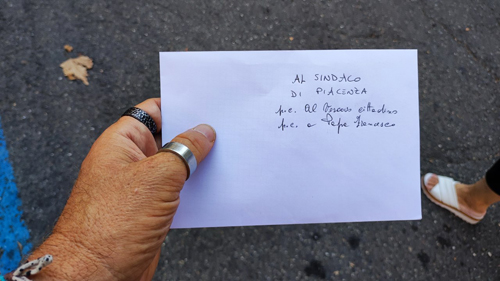 AL SINDACO
DI PIACENZA
p.c. Al Vescovo cittadino
p.c. a Papa Francesco